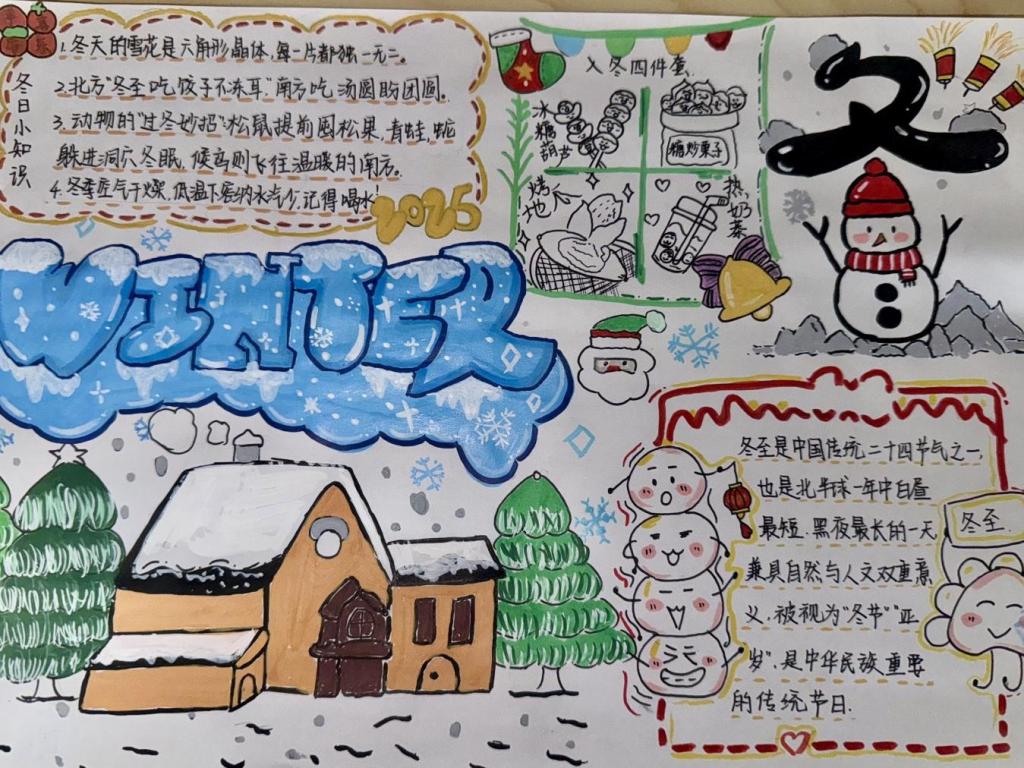 冬日小知识
1.冬天的雪花是六角形晶体,每一片都独一无二。
2.北方"冬至吃饺子不冻耳"南方吃汤圆盼团圆。
3.动物的"过冬妙招"松鼠提前囤松果,青蛙,蛇
躲进洞穴冬眠,候鸟则飞往温暖的南方。
4.冬季空气干燥,低温下容纳水汽少,记得喝水!
2025
入冬四件套
冰糖葫芦
糖炒栗子
烤地瓜
热奶茶
冬
WINTER
冬至是中国传统二十四节气之一,
也是北半球一年中白昼
最短,黑夜最长的一天
兼具自然与人文双重意
义,被视为"冬节""亚
岁",是中华民族重要
的传统节日.
冬至